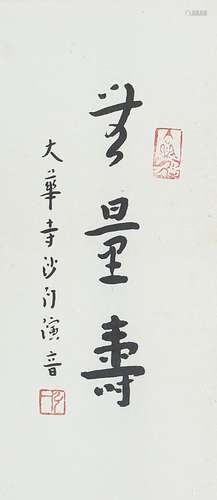 无量壽
大華寺沙门演音